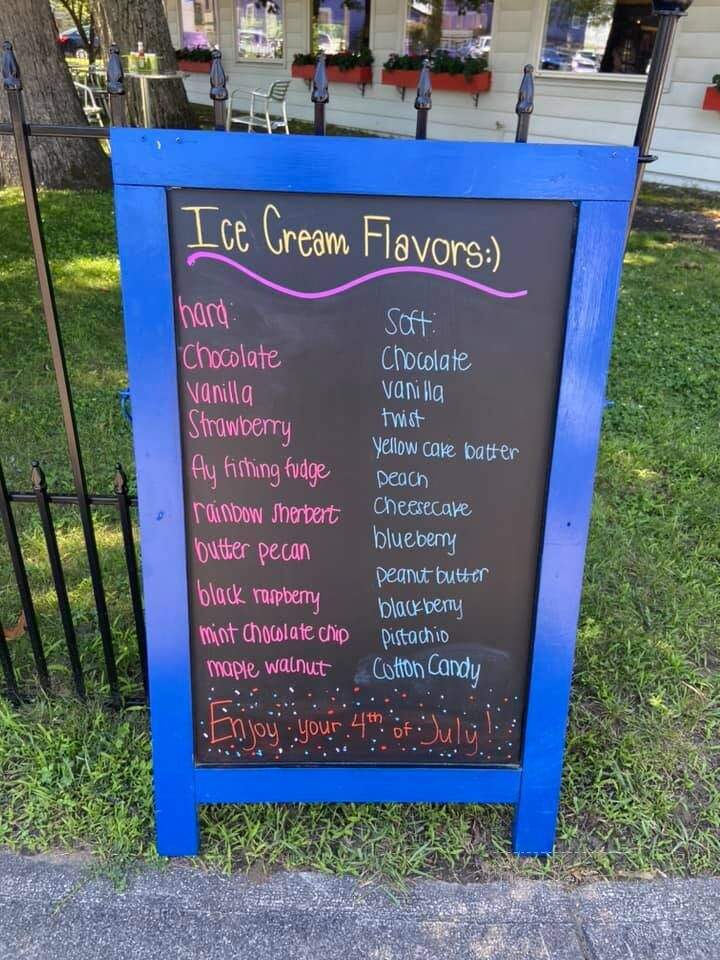 Ice Cream Flavors:)
hard:
Chocolate
Vanilla
Strawberry
fly fishing fudge
rainbow sherbert
butter pecan
black raspberry
mint chocolate chip
maple walnut
Soft:
Chocolate
vanilla
twist
Yellow cake batter
peach
Cheesecake
blueberry
peanut butter
blackberry
pistachio
Cotton Candy
Enjoy your 4th of July!